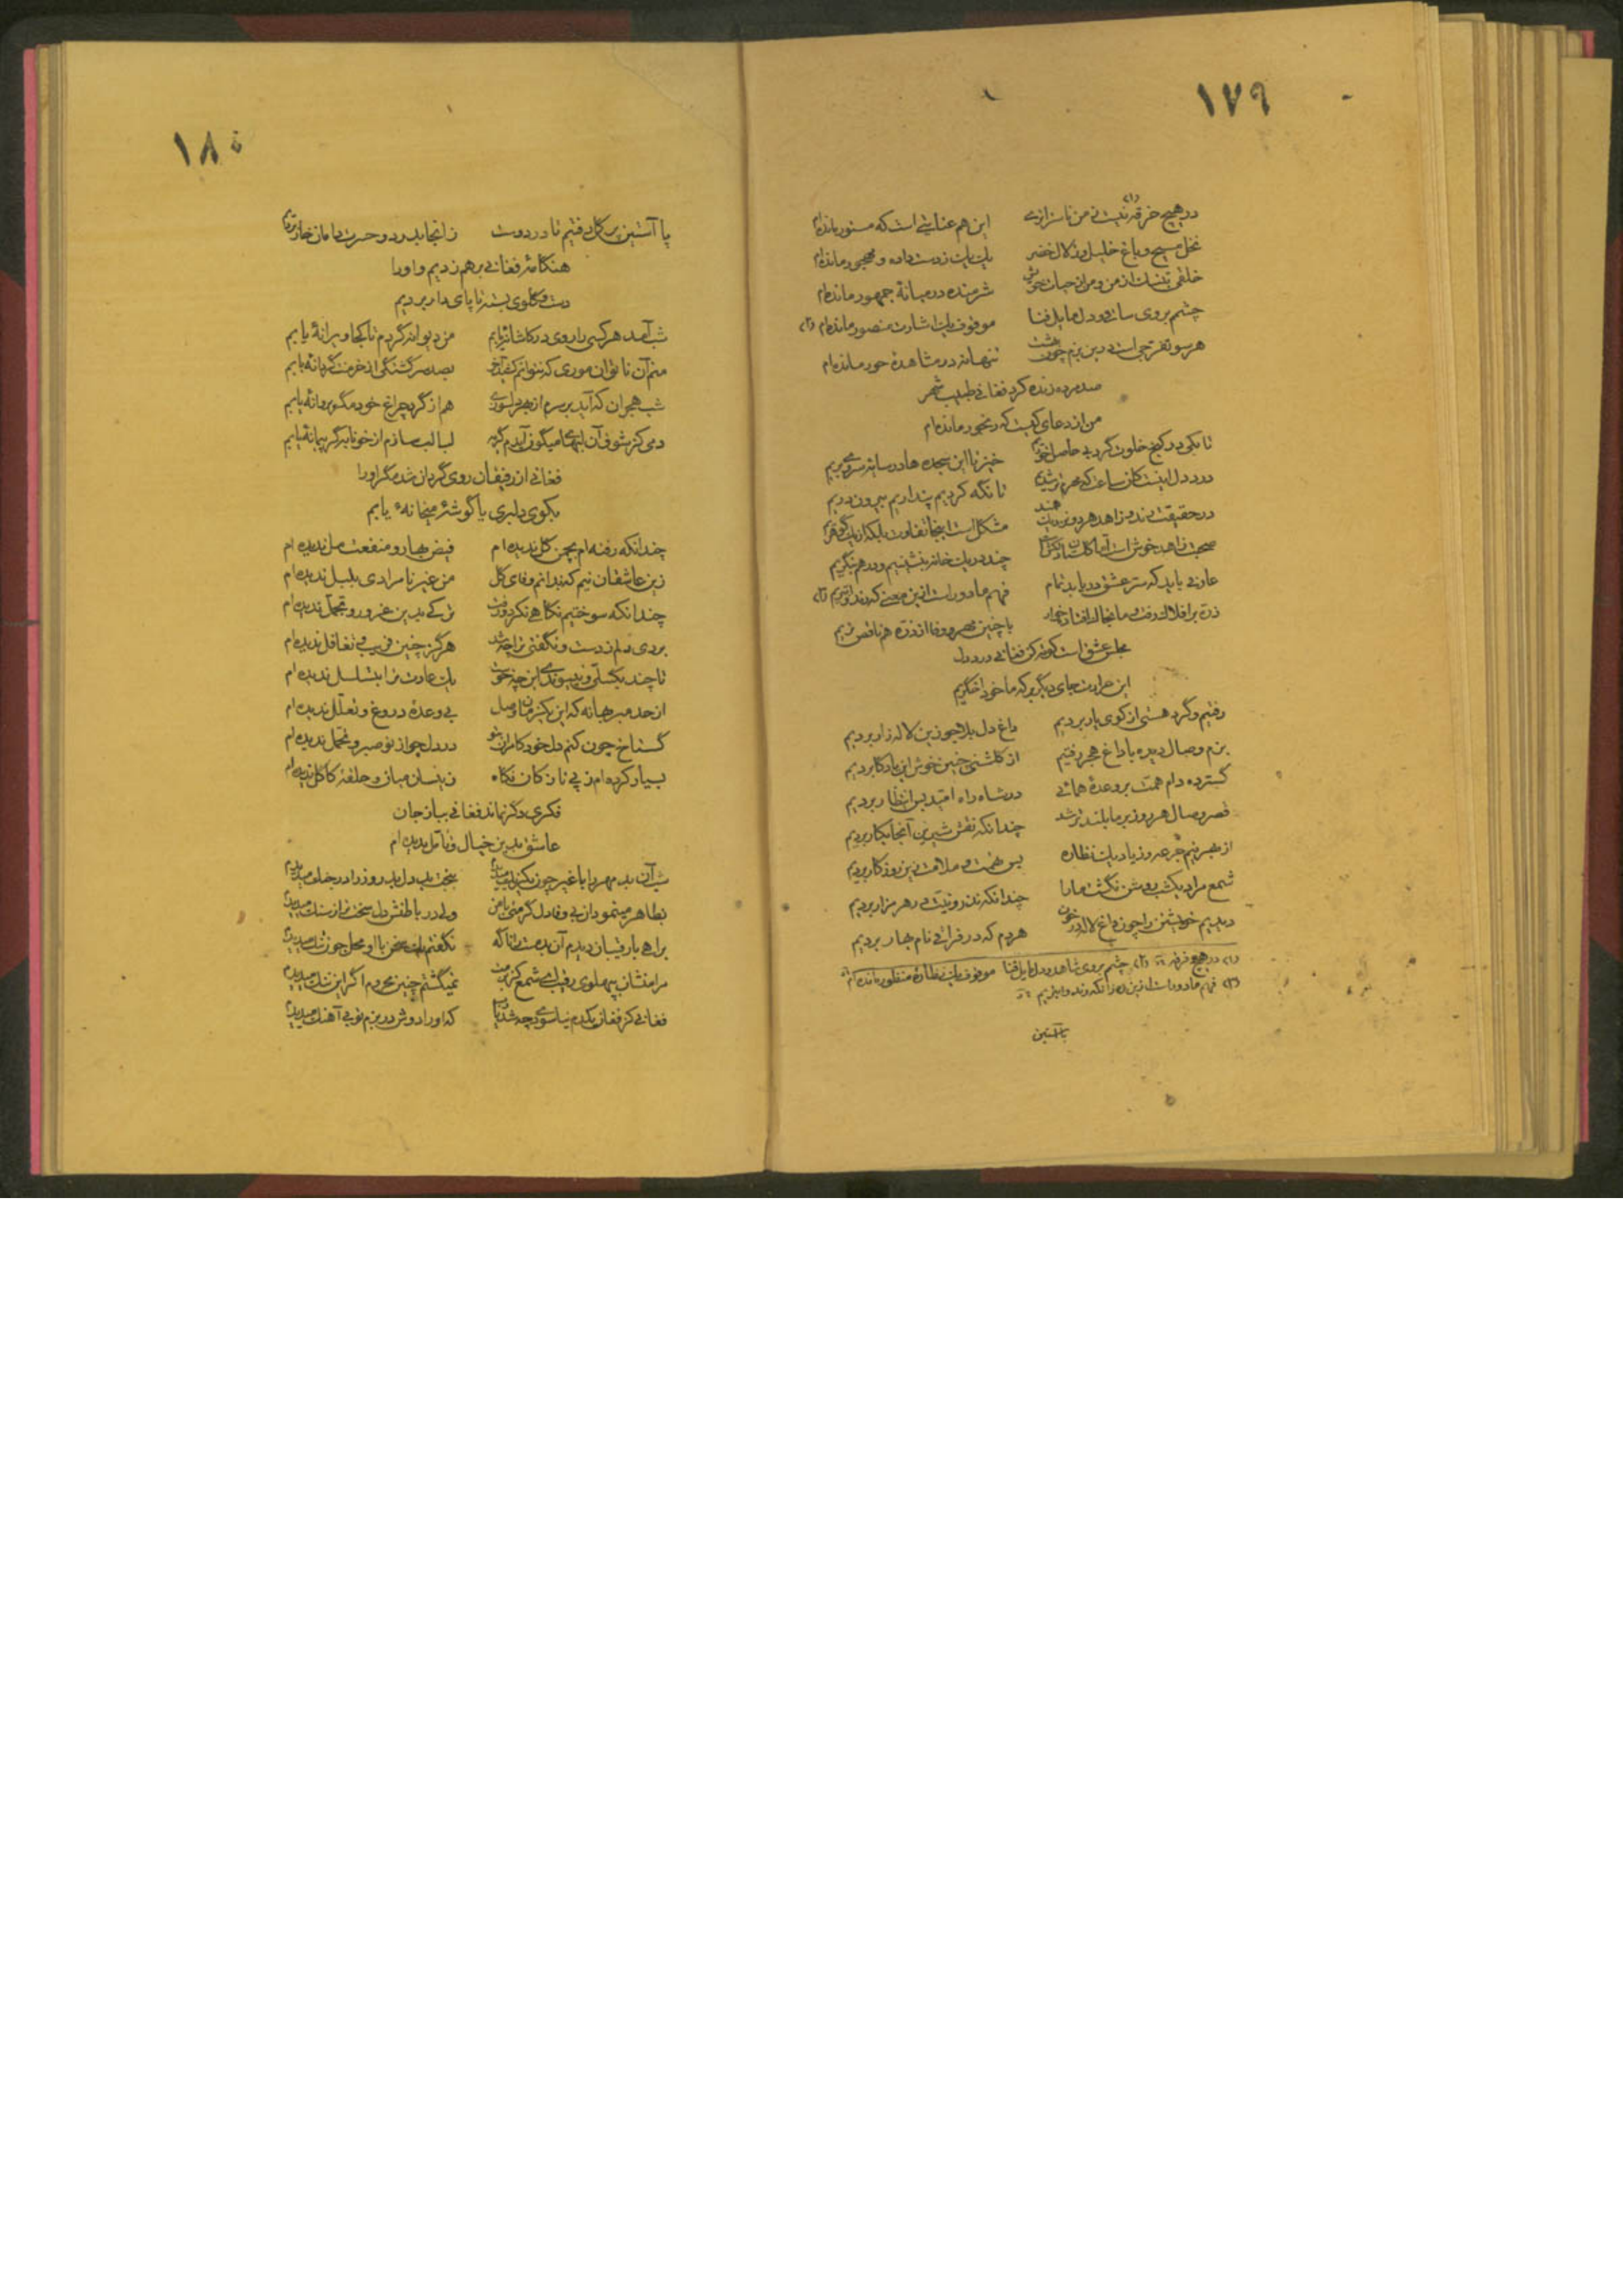 ۱۷۹
در هیچ خرقه نیست ز من ناسزاتری این هم عنایتی است که مستور مانده‌ام
نخل مسیح و باغ خلیل و زلال خضر یک یک ز دست داده و مهجور مانده‌ام
خلقی به تنگ از من و من از حیات خویش شرمنده در میانهٔ جمهور مانده‌ام
چشم بروی ساقی و دل مایل فنا موقوف یک اشارت منصور مانده‌ام (۲)
هر سو تفرجی است درین بزم چون بهشت تنها نه در مشاهدهٔ حور مانده‌ام
صد مرده زنده کرد فغانی طبیب شهر
من از دعای کیست که رنجور مانده‌ام
تا بکی در کنج خلوت گرد بی حاصل خیز تا این سجده‌ها در سایهٔ سروی بریم
درد دل اینست کان ساعت که محرم تا نگه کردیم پنداریم بیرون دریم
در حقیقت رند و زاهد هر دو نزدیک همند مشکل است اینجا تفاوت بلکه از یک گوهریم
صحبت زاهد خوش است اما چند در یک خانه بنشینیم و در هم ننگریم
عارفی باید که سر عشق دریابد تمام فهم ما دور است ازین معنی که رند و ابتریم (۳)
ذره بر افلاک رفت و ما بخاک افتاده خوار با چنین مهر و وفا از ذره هم ناقص‌تریم
مجلس عشق است کوته کن فغانی درد دل
این حرارت جای دیگر بر که ما خود اخگریم
رفتیم و گرد هستی از کوی یار بردیم داغ دل بلاجو زین لاله‌زار بردیم
بزم وصال دیده با داغ هجر رفتیم از گلشنی چنین خوش این یادگار بردیم
گسترده دام همت بر وعدهٔ همائی در شاه راه امید بس انتظار بردیم
قصر وصال هر روز بر ما بلندتر شد چندانکه نقش شیرین آنجا بکار بردیم
از بهر نیم جرعه وز یاد یک نظاره بس محنت و ملامت زین روزگار بردیم
شمع مراد یکشب روشن نگشت ما را چندانکه نذر و نیت در هر مزار بردیم
دیدیم خویشتن را چون داغ لاله در خون هر دم که در فراقی نام بهار بردیم
(۱) در هیچ فرقه (۲) چشم بروی شاهد و دل مایل فنا موقوف یک نظارهٔ منظور مانده‌ام
(۳) فهم ما دور است ازین ره زانکه رند و ابتریم
با آستین
۱۸۰
با آستین پر گل رفتیم تا در دوست زانجا بدرد و حسرت دامان خار بردیم
هنگامهٔ فغانی بر هم زدیم و او را
دست و گلوی بسته تا پای دار بردیم
شب آمد هر کسی را روی در کاشانه یابم من دیوانه گردم تا کجا ویرانهٔ یابم
منم آن ناتوان موری که نتوانم بصد سرگشتگی از خرمنت گر دانهٔ یابم
شب هجران که آید بر سرم از بهر دلسوزی هم از گرد چراغ خود مگر پروانهٔ یابم
دمی کز شوق آن لبهای میگون آیدم گریه لبالب سازم از خونابه گر پیمانهٔ یابم
فغانی از رفیقان روی گردان شد مگر او را
بکوی دلبری یا گوشهٔ میخانهٔ یابم
چندانکه رفته‌ام بچمن گل ندیده‌ام فیض بهار و منفعت مل ندیده‌ام
زین عاشقان نیم که ندانم وفای گل من غیر نامرادی بلبل ندیده‌ام
چندانکه سوختیم نگاهی نکرد و رفت ترکی بدین غرور و تجمل ندیده‌ام
بردی دلم ز دست و نگفتی ترا چه شد هرگز چنین فریب و تغافل ندیده‌ام
تا چند بگسلی و بپیوندی این چه خوست یک عادت ترا بتسلسل ندیده‌ام
از حد مبر بهانه که این یکنفس وصال بی وعدهٔ دروغ و تعلل ندیده‌ام
گستاخ چون کنم دل خود کامران تو در دل چو از تو صبر و تحمل ندیده‌ام
بسیار کرده‌ام ز پی نازکان نگاه زینسان میان و حلقهٔ کاکل ندیده‌ام
فکری دگر نماند فغانی بباز جان
عاشق بدین خیال و تامل ندیده‌ام
شب آن بد مهر را با غیر چون بکرنگ میدیدم ببخت بد دل بدروز را در جنگ میدیدم
بظاهر مینمود آن بی وفا دل گرمئی با من ولی در باطنش دل سخت تر از سنگ میدیدم
براهی با رقیبان دیدم آن بدمست را ناگه نگفتم یک سخن با او محل چون تنگ میدیدم
مرا منشان بپهلوی رقیب ای شمع نمیگشتم چنین محرم اگر این ننگ میدیدم
فغانی کز فغان یکدم نیاسودی چه شد که او را دوش در بزم تو بی آهنگ میدیدم